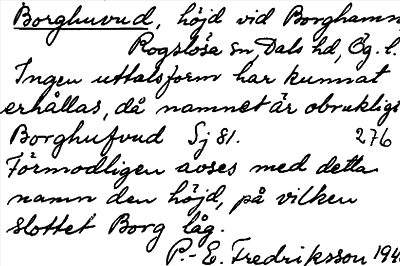 Borghuvud, höjd vid Borghamn,
Rogslösa sn, Dals hd, Ög. l.
Ingen uttalsform har kunnat
erhållas, då namnet är obrukligt
Borghufvud Sj 81. 276
Förmodligen avses med detta
namn den höjd, på vilken
slottet Borg låg.
P.-E. Fredriksson 194